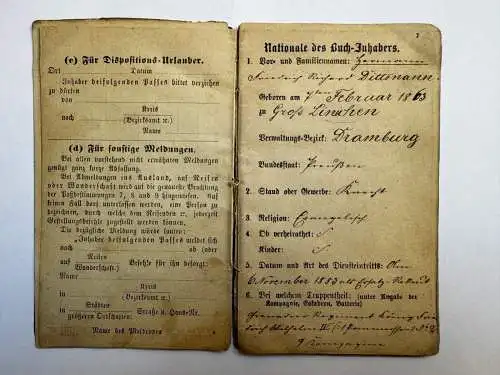 (c) Für Dispositions-Urlauber.
Ort Datum
Inhaber beifolgenden Passes bittet verziehen
zu dürfen
von
Kreis
nach (Bezirksamt ꝛc.)
Name
(d) Für sonstige Meldungen.
Bei allen vorstehend nicht erwähnten Meldungen
genügt ganz kurze Abfassung.
Bei Abmeldungen ins Ausland, auf Reisen
oder Wanderschaft wird auf die genaueste Beachtung
der Paßbestimmungen 7, 8 und 9 hingewiesen. Auf
keinen Fall darf unterlassen werden, eine Person zu
bezeichnen, durch welche dem Reisenden ꝛc. jederzeit
Gestellungsbefehle zugestellt werden können.
Die bezügliche Meldung würde lauten:
„Inhaber beifolgenden Passes meldet sich
nach ab (oder
auf Reisen
Wanderschaft.) Befehle für ihn besorgt:
Name
in Kreis
(Bezirksamt ꝛc.)
in Städten
größeren Ortschaften: Straße u. Haus-Nr.
Name des Meldenden
2
Nationale des Buch-Inhabers.
1. Vor- und Familiennamen: Hermann
Friedrich Richard Dittmann
Geboren am 7ten Februar 1863
zu Groß Linichen
Verwaltungs-Bezirk: Dramburg
Bundesstaat: Preußen
2. Stand oder Gewerbe: Knecht
3. Religion: Evangelisch
4. Ob verheirathet:
Kinder:
5. Datum und Art des Diensteintritts: Am
6 November 1883 als Ersatz-Rekrut
6. Bei welchem Truppentheil: (unter Angabe der
Kompagnie, Eskadron, Batterie)
Grenadier Regiment König Frie-
drich Wilhelm IV (1 Pommersches) No 2
9 Kompagnie